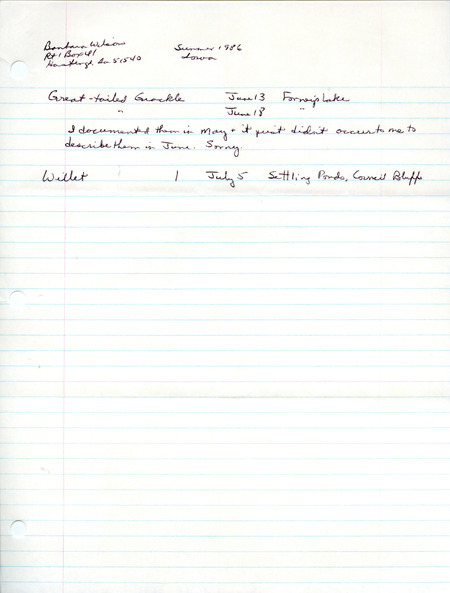 Barbara Wilson Summer 1986
Rt 1 Box 41 Iowa
Hastings, Ia 51540
Great-tailed Grackle June 13 Forney's Lake
" June 18 "
I documented them in May & it just didn't occur to me to
describe them in June. Sorry.
Willet 1 July 5 Settling Ponds, Council Bluffs